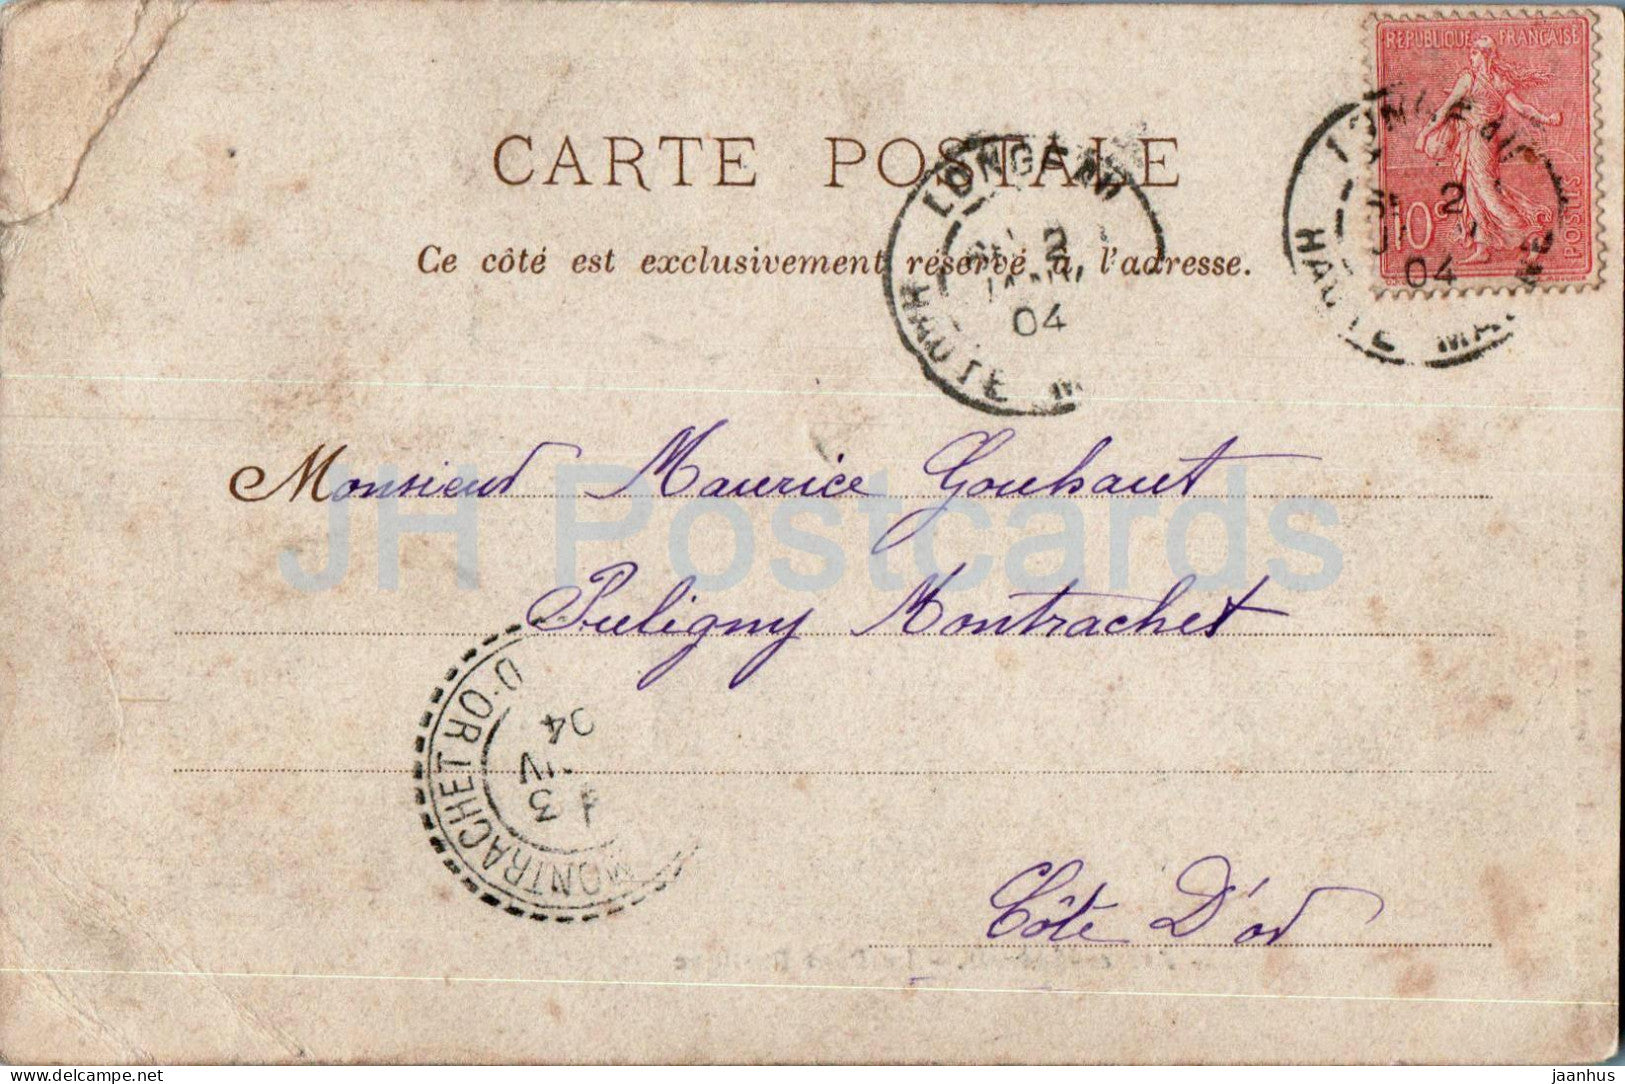 RÉPUBLIQUE FRANÇAISE
10c
POSTES
CARTE POSTALE
Ce côté est exclusivement réservé à l'adresse.
LONGEAU
2
04
HAUTE
LONGEAU
2
04
HAUTE MARNE
Monsieur Maurice Gouhaut
JH Postcards
Puligny Montrachet
MONTRACHET
D'OR
3
04
Côte D'or
delcampe.net
jaanhus